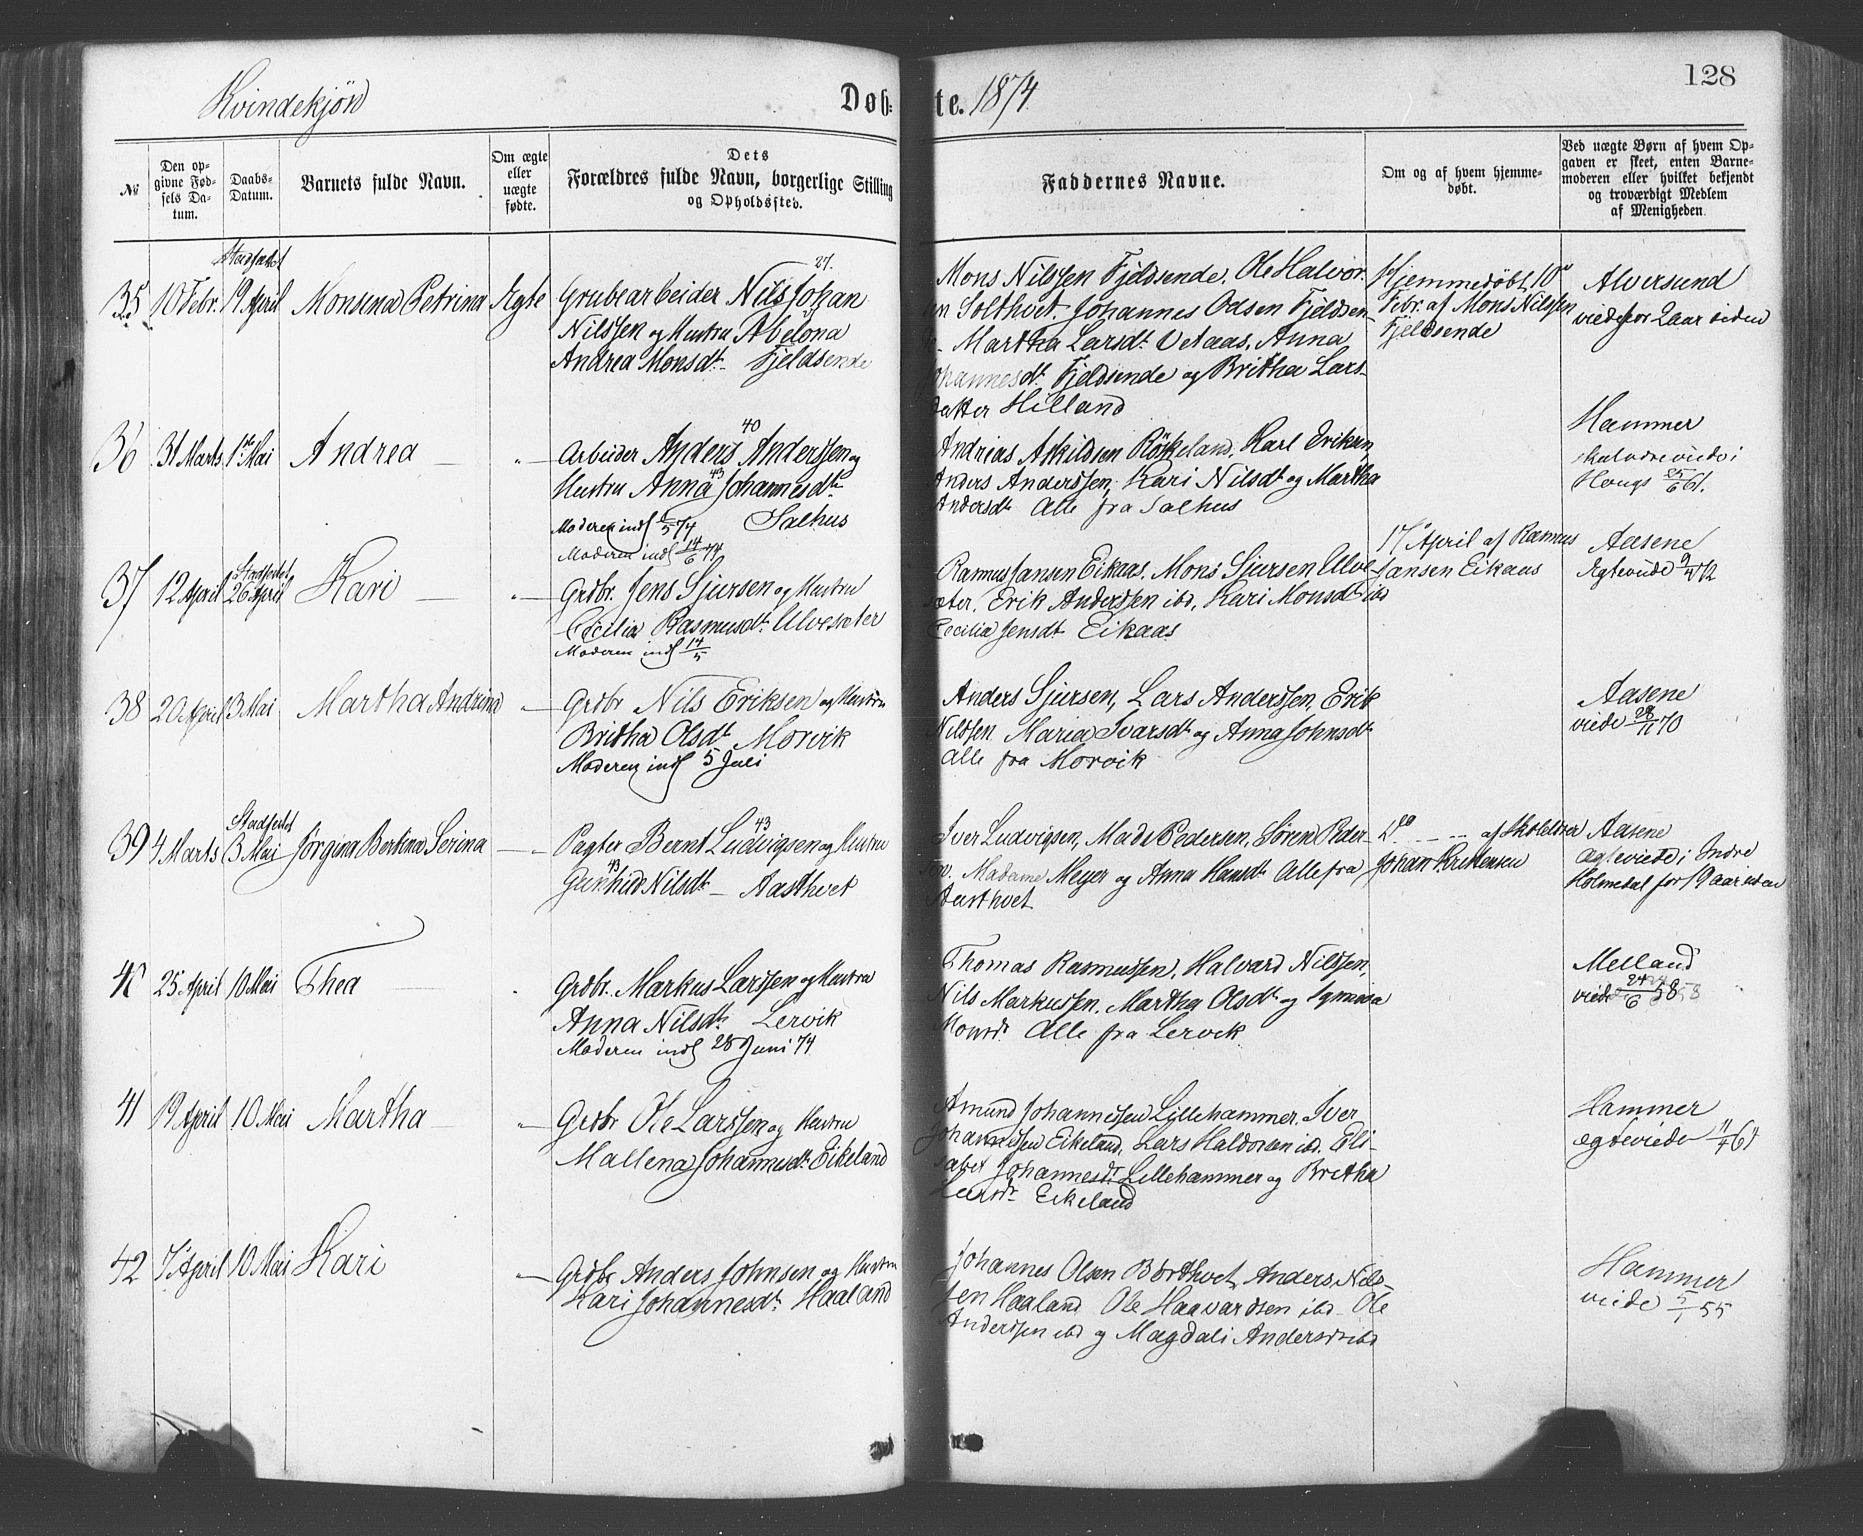 Kvindekjön Döbte. 1874 128
№
Den opgivne Fødsels Datum.
Daabs-Datum.
Barnets fulde Navn.
Om ægte eller uægte fødte.
Dets Forældres fulde Navn, borgerlige Stilling og Opholdssted.
Faddernes Navne.
Om og af hvem hjemmedøbt.
Ved uægte Børn af hvem Opgaven er skeet, enten Barnemoderen eller hvilket bekjendt og troværdigt Medlem af Menigheden.
35 10 Febr. Stadfæstet 19 April Monsina Petrina Ægte
27.
Grubearbeider Nils Johan
Nilssen og Hustru Abelona
Andrea Monsdt. Fjeldsende
Mons Nilssen Fjeldsende. Ole Halvor
Solthvet. Johannes Olsen Fjeldsen
Martha Larsdt. Vetaas, Anna
Johannesdt. Fjeldsende og Britha Lars-
datter Hilland
Hjemmedöbt 10de
Febr. af Mons Nilssen
Fjeldsende
Alversund
viede for 2 aar siden
36 31 Marts 1ste Mai Andrea — „ —
40
Arbeider Anders Anderssen og
43
Hustru Anna Johannesdtr
Moderen indl 1/5 74 Salhus
Andreas Askildsen Röskeland, Karl Eriksen,
Anders Anderssen, Kari Nilsdt og Martha
Andersdt. Alle fra Salhus
Hammer
viede i
Hougs 25/6 61.
37 12 April Stadfestet 26 April Kari — „ —
Moderen indl 14/6 74
Grdbr. Jens Sjursen og Hustru
Cecilia Rasmusdt. Ulvesæter
Rasmus Jansen Eikaas. Mons Sjursen Ulve-
sæter. Erik Anderssen ibd, Kari Monsdt ibd
Cecilia Jensdt Eikaas
17 April af Rasmus
Jansen Eikaas
Aasene
Ægteviede 9/4 72
38 20 April 3 Mai Martha Andrina „ —
Moderen indl 17/5
Grdbr Nils Eriksen og Hustru
Britha Olsdt. Morvik
Moderen indl 5 Juli
Anders Sjursen, Lars Anderssen, Erik
Nilssen. Maria Ivarsdt og Anna Johnsdt
alle fra Morvik
Aasene
viede 29/11 70
39 4 Marts Stadfestet 3 Mai Jörgina Bertina Serina — „
43
Pagter Bernt Ludvigsen og Hustru
43
Gunhild Nilsdt — Aasthvet
Iver Ludvigsen, Mads Pedersen, Sören Peder-
Madame Meyer og Anna Hansdt Alle fra
Aasthvet
af Skolelærer
Johan Kristensen
Aasene
Ægteviede i Indre
Holmedal for 19 aar siden
40 25 April 10 Mai Thea — „
Grdbr. Markus Larssen og Hustru
Anna Nilsdt. Lervik
Moderen indl 28 Juni 74
Thomas Rasmussen, Halvard Nilssen,
Nils Markussen. Martha Olsdt og
Monsdt Alle fra Lervik.
Melland
viede 24/6 58
41 19 April 10 Mai Martha — „
Grdbr Ole Larssen og Hustru
Mallena Johannesdt. Eikeland
Amund Johannessen Lillehammer. Iver
Johannessen Eikeland, Lars Haldorsen ibd. Eli-
sabet Johannesdt. Lillehammer og Britha
Larsdt. Eikeland
Hammer
ægteviede 11/7 61
42 7 April 10 Mai Kari „ —
Grdbr Anders Johnsen og Hustru
Kari Johannesdt. Haaland
Johannes Olsen Börthvet, Anders Nils-
sen Haaland Ole Haavardsen ibd. Ole
Anderssen ibd og Magdali Andersdt ibd
Hammer
viede 5/1 55